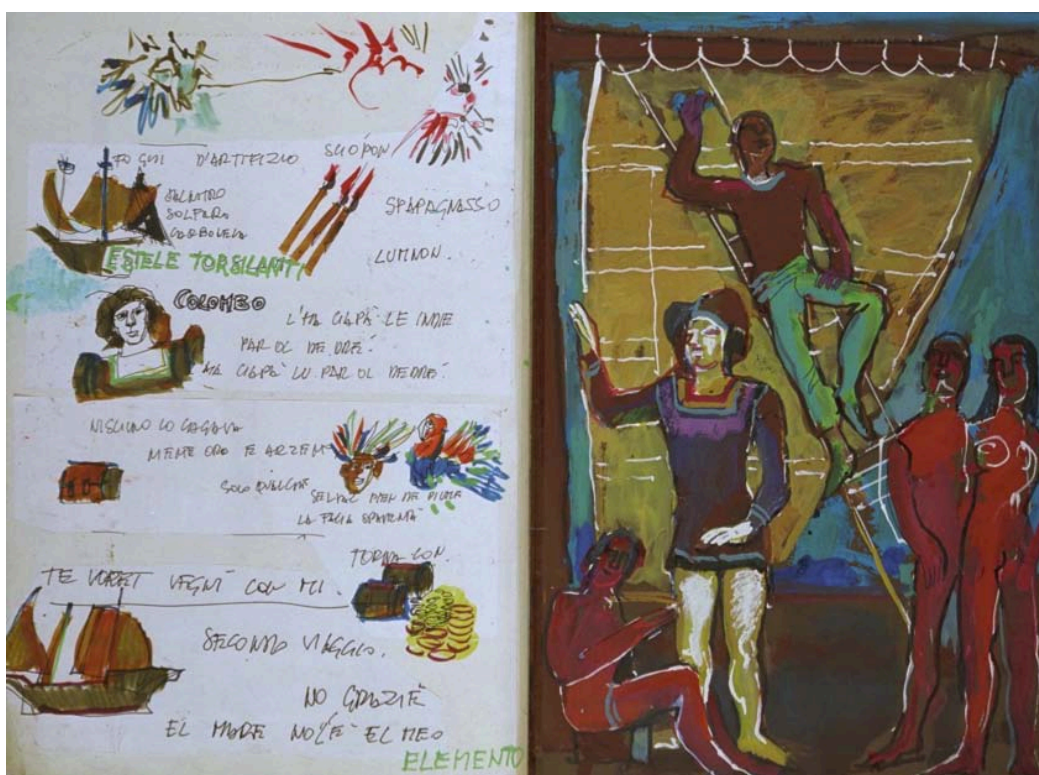 FOGUI D'ARTIFIZIO SCIOPON
SALNITRO
SOLFARO
SPAPAGNASSO
LUMNON.
ESTELE TORSILANTI
COLOMBO
L'HA CIAPÀ LE INDIE
PAR OL DE DRÉ
HA CIAPÀ LU PAR OL DEDRÉ.
NISCIUNO LO CAGAVA
NIENTE ORO E ARZEN
SOLO QUALCHE
SELVAC PIEN DE PIUME
LA FACIA
TORNA CON.
TE VORET VEGNÌ CON MI.
SECONDO VIAGGIO.
NO GRAZIE
EL MARE NO L'È EL MEO
ELEMENTO